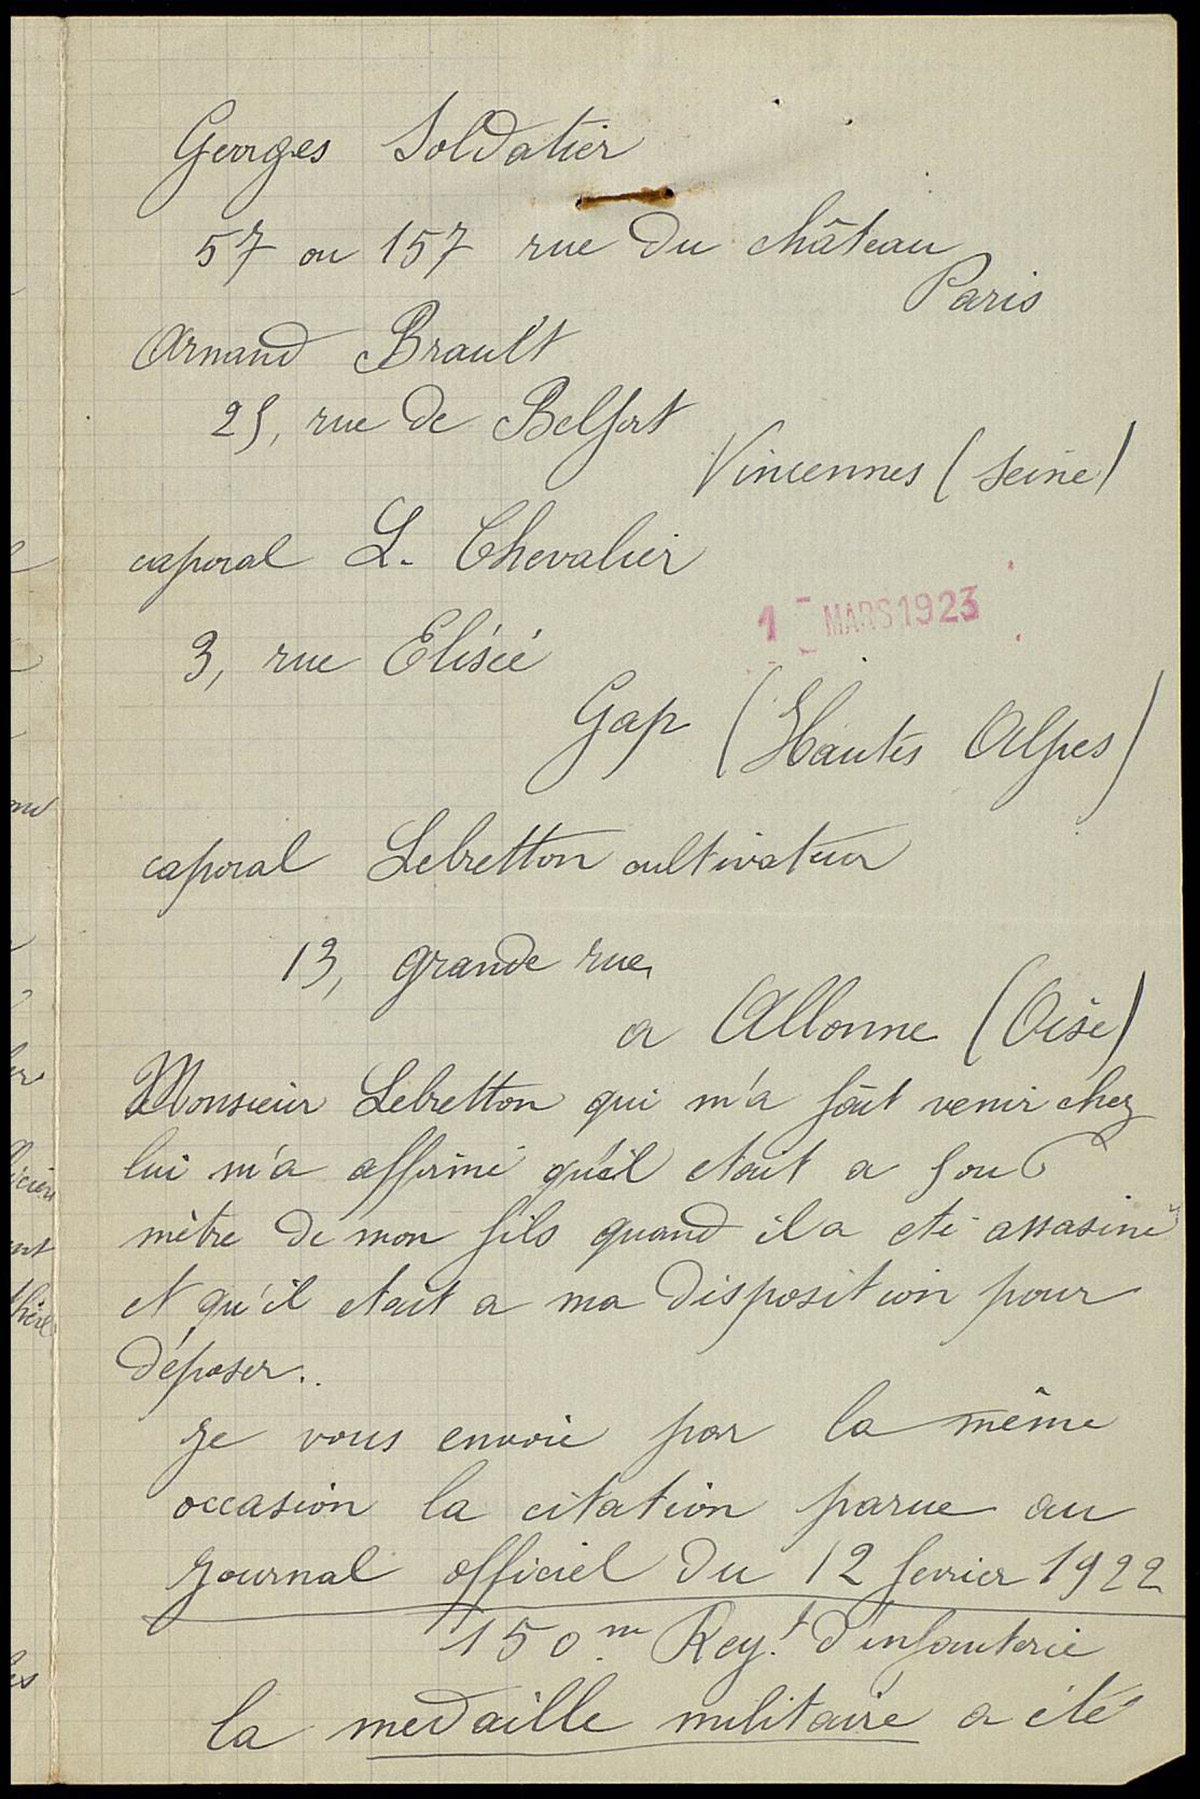 Georges Soldatier
57 ou 157 rue du château
Paris
Arnand Brault
25, rue de Belfort
Vincennes (Seine)
caporal L. Chevalier
1 - MARS 1923
3, rue Elisée
Gap (Hautes Alpes)
caporal Lebretton cultivateur
13, grande rue
a Allonne (Oise)
Monsieur Lebretton qui m'a fait venir chez
lui m'a affirmé qu'il etait a
mètre de mon fils quand il a eté assasiné
et qu'il etait a ma disposition pour
déposer..
Je vous envoie par la même
occasion la citation parue au
Journal officiel du 12 fevrier 1922
150me Regt d'infanterie
la medaille militaire a été